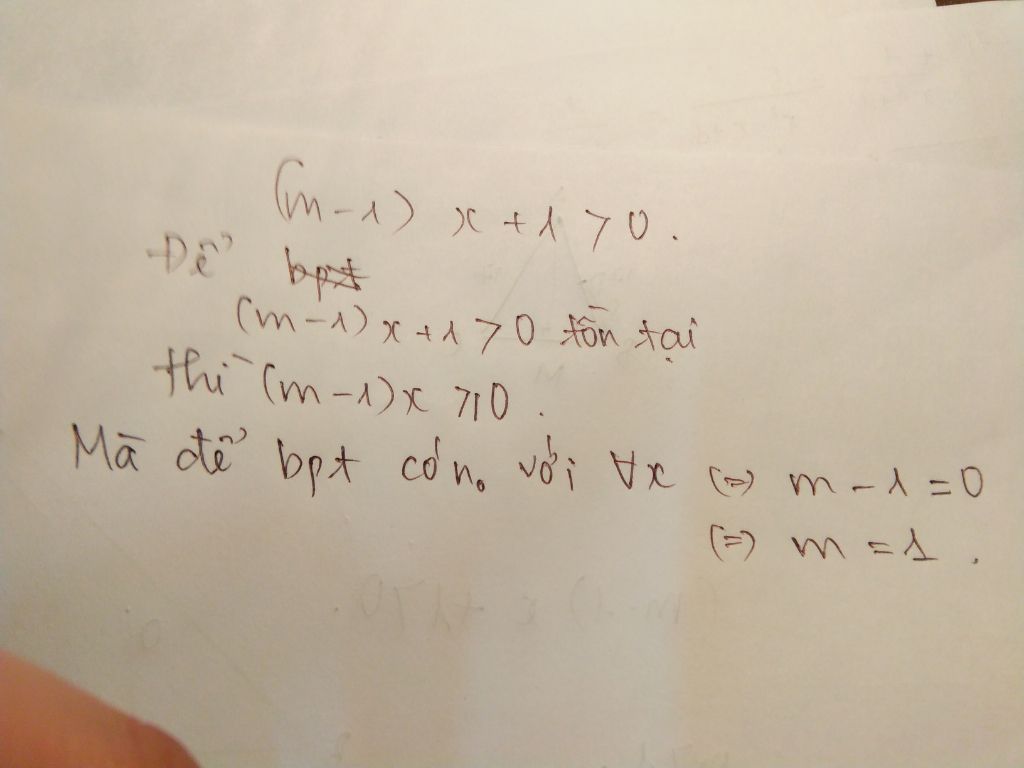 (m-1) x + 1 > 0.
Để
(m-1) x + 1 > 0 tồn tại
thì (m-1)x ⩾ 0.
Mà để bpt có no với ∀x (=) m - 1 = 0
(=) m = 1.